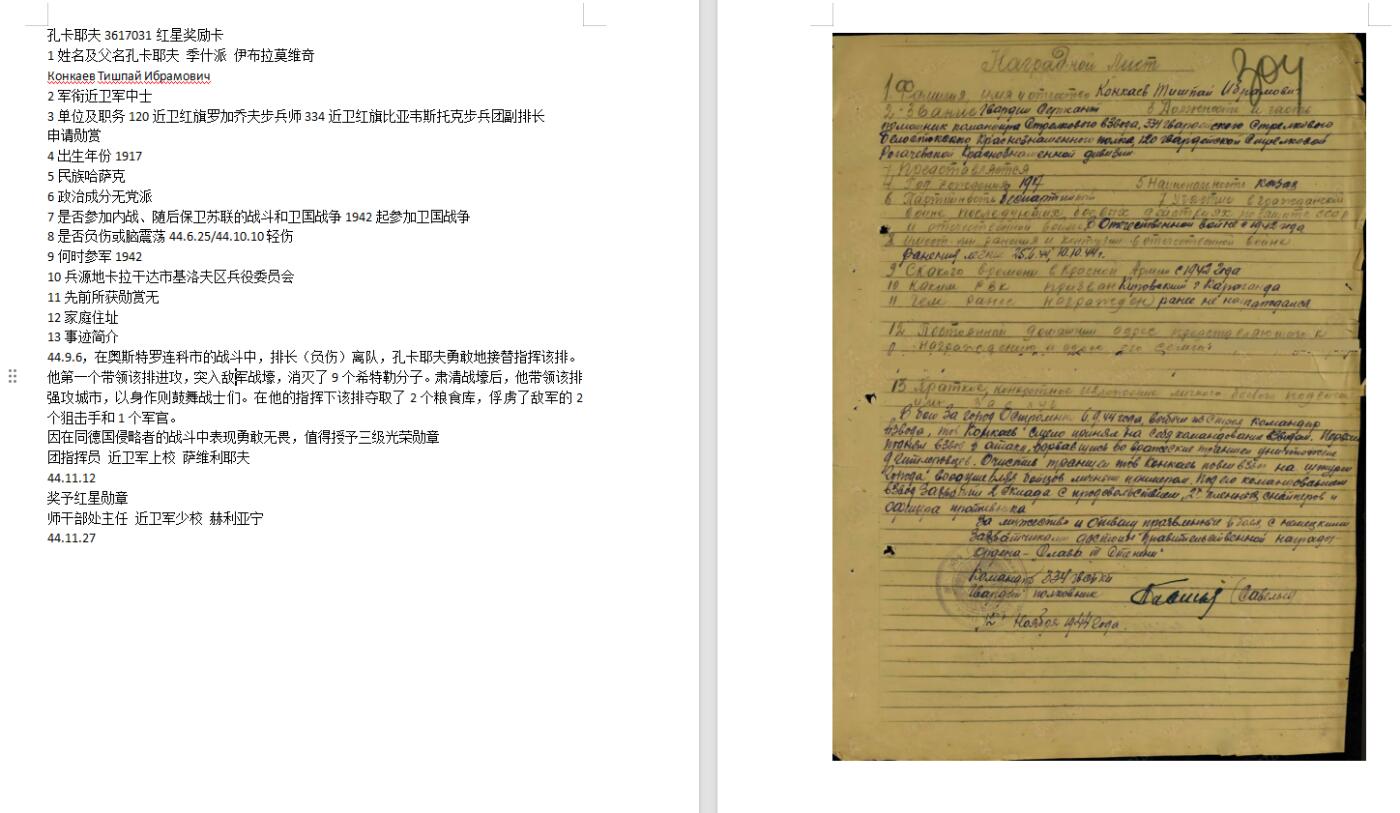 孔卡耶夫 3617031 红星奖励卡
1 姓名及父名孔卡耶夫 季什派 伊布拉莫维奇
Конкаев Тишпай Ибрамович
2 军衔近卫军中士
3 单位及职务 120 近卫红旗罗加乔夫步兵师 334 近卫红旗比亚韦斯托克步兵团副排长
申请勋赏
4 出生年份 1917
5 民族哈萨克
6 政治成分无党派
7 是否参加内战、随后保卫苏联的战斗和卫国战争 1942 起参加卫国战争
8 是否负伤或脑震荡 44.6.25/44.10.10 轻伤
9 何时参军 1942
10 兵源地卡拉干达市基洛夫区兵役委员会
11 先前所获勋赏无
12 家庭住址
13 事迹简介
44.9.6，在奥斯特罗连科市的战斗中，排长（负伤）离队，孔卡耶夫勇敢地接替指挥该排。
他第一个带领该排进攻，突入敌军战壕，消灭了 9 个希特勒分子。肃清战壕后，他带领该排
强攻城市，以身作则鼓舞战士们。在他的指挥下该排夺取了 2 个粮食库，俘虏了敌军的 2
个狙击手和 1 个军官。
因在同德国侵略者的战斗中表现勇敢无畏，值得授予三级光荣勋章
团指挥员 近卫军上校 萨维利耶夫
44.11.12
奖予红星勋章
师干部处主任 近卫军少校 赫利亚宁
44.11.27
Наградной Лист
304
1 Фамилия, имя и отчество Конкаев Тишпай Ибрамович
2 Звание Гвардии Сержант 3 Должность и часть
помошник командира Стрелкового взвода, 334 гвардейского Стрелкового
Белостокского Краснознаменного полка, 120 гвардейской Стрелковой
Рогачевской Краснознаменной дивизии
Представляется
4 Год рождения 1917 5 Национальность казах
6 Партийность безпартийный 7 Участие в гражданской
войне последующих боевых действиях по защите ссср
и отечественной войне В Отечественной войне с 1942 года
8 Имеет ли ранения и контузии в отечественной войне
ранения легкие 25.6.44, 10.10.44 г.
9 С какого времени в Красной Армии с 1942 года
10 Каким РВК призван Кировский г Караганда
11 Чем ранее награжден ранее не награждался
12 Постоянный домашний адрес представляемого к
награждению и адрес его семьи
13 Краткое, конкретное изложение личного боевого подвига
В бою За город 6.9.44 года, командир
взвода, тов Конкаев смело принял на себя командование взводом. Первым
поднял взвод в атаку, ворвавшись во вражеские траншеи уничтожено
9 Гитлеровцев. Очистив траншеи тов Конкаев повел взвод на штурм
города, воодушевляя бойцов личным примером. Под его командованием
взвод Захватил 2 склада с продовольствием, 2 пленных снайперов и
офицера противника
За мужество и отвагу проявленное в боях с немецкими
Захватчиками достоин Правительственной награды
ордена - Слава III Степени
Командир 334
Гвардии полковник (Савельев)
12 Ноября 1944 года.